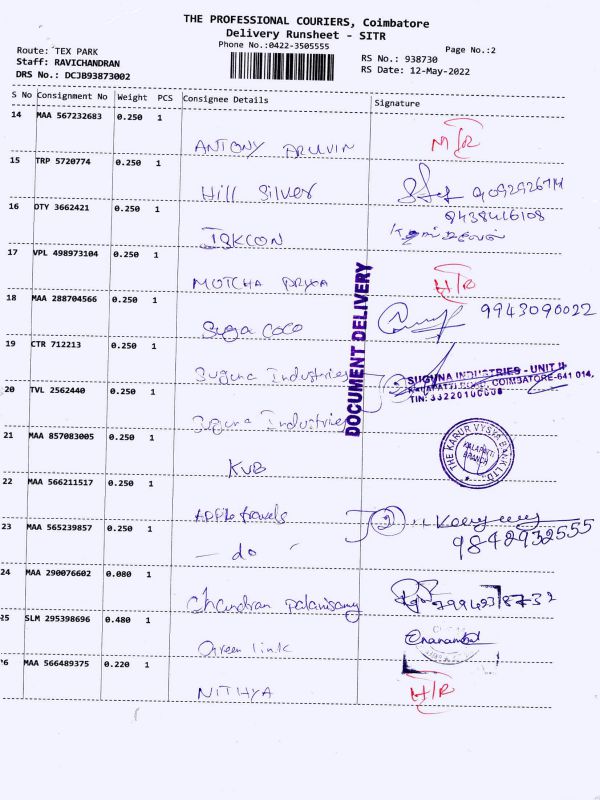 THE PROFESSIONAL COURIERS, Coimbatore
Delivery Runsheet - SITR
Phone No.:0422-3505555
Page No.:2
Route: TEX PARK
Staff: RAVICHANDRAN
DRS No.: DCJB93873002
RS No.: 938730
RS Date: 12-May-2022
S No Consignment No Weight PCS Consignee Details Signature
14 MAA 567232683 0.250 1
ANTONY
15 TRP 5720774 0.250 1
Hill Silver
16 DTY 3662421 0.250 1
9438416108
ISKCON
17 VPL 498973104 0.250 1
MOTCHA PRYA H/R
18 MAA 288704566 0.250 1
9943090022
Suga COCO
DOCUMENT DELIVERY
19 CTR 712213 0.250 1
Suguna Industries
SUGUNA INDUSTRIES - UNIT II
KALAPATTI ROAD, COIMBATORE-641 014,
TIN: 33220100608
20 TVL 2562440 0.250 1
Suguna Industries
21 MAA 857083005 0.250 1
KVB
THE KARUR VYSYA BANK LTD.
KALAPATTI
BRANCH
22 MAA 566211517 0.250 1
Apple travels
23 MAA 565239857 0.250 1
9842932555
— do "
24 MAA 290076602 0.080 1
Chandran Palanisamy
25 SLM 295398696 0.480 1
Green link
26 MAA 566489375 0.220 1
NITHYA H/R